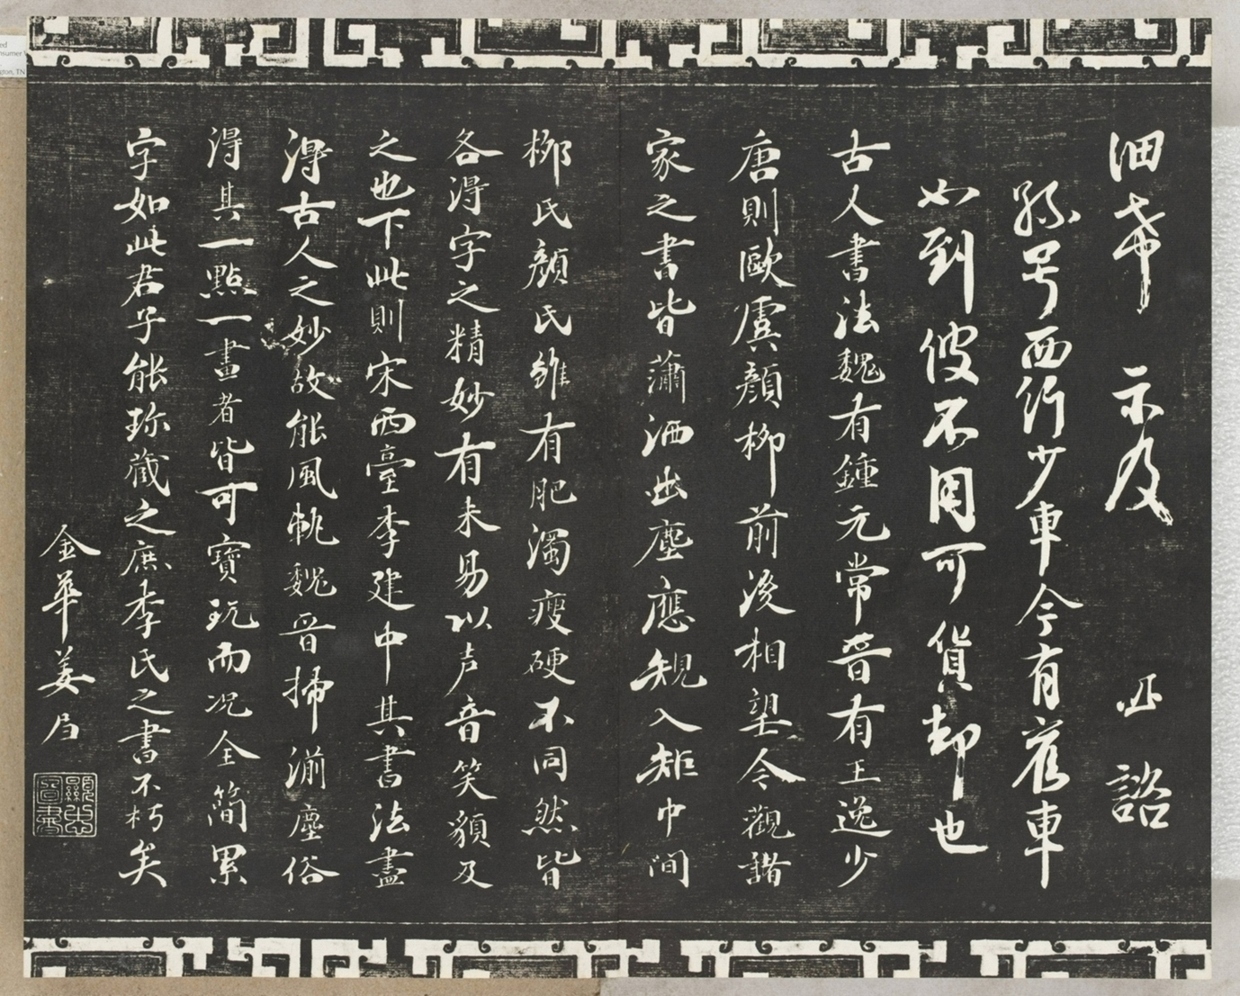 細希 示及 諮
孫号西行少車今有舊車
如到彼不用可貨却也
古人書法魏有鍾元常晉有王逸少
唐則歐虞顏柳前後相望今觀諸
家之書皆瀟洒出塵應規入矩中間
柳氏顏氏雖有肥濁瘦硬不同然皆
各得字之精妙有未易以声音笑貌及
之也下此則宋西臺李建中其書法盡
得古人之妙故能風帆魏晉掃湔塵俗
得其一點一畫者皆可寶玩而況全簡累
字如此君子能珍蔵之庶李氏之書不朽矣
金華姜